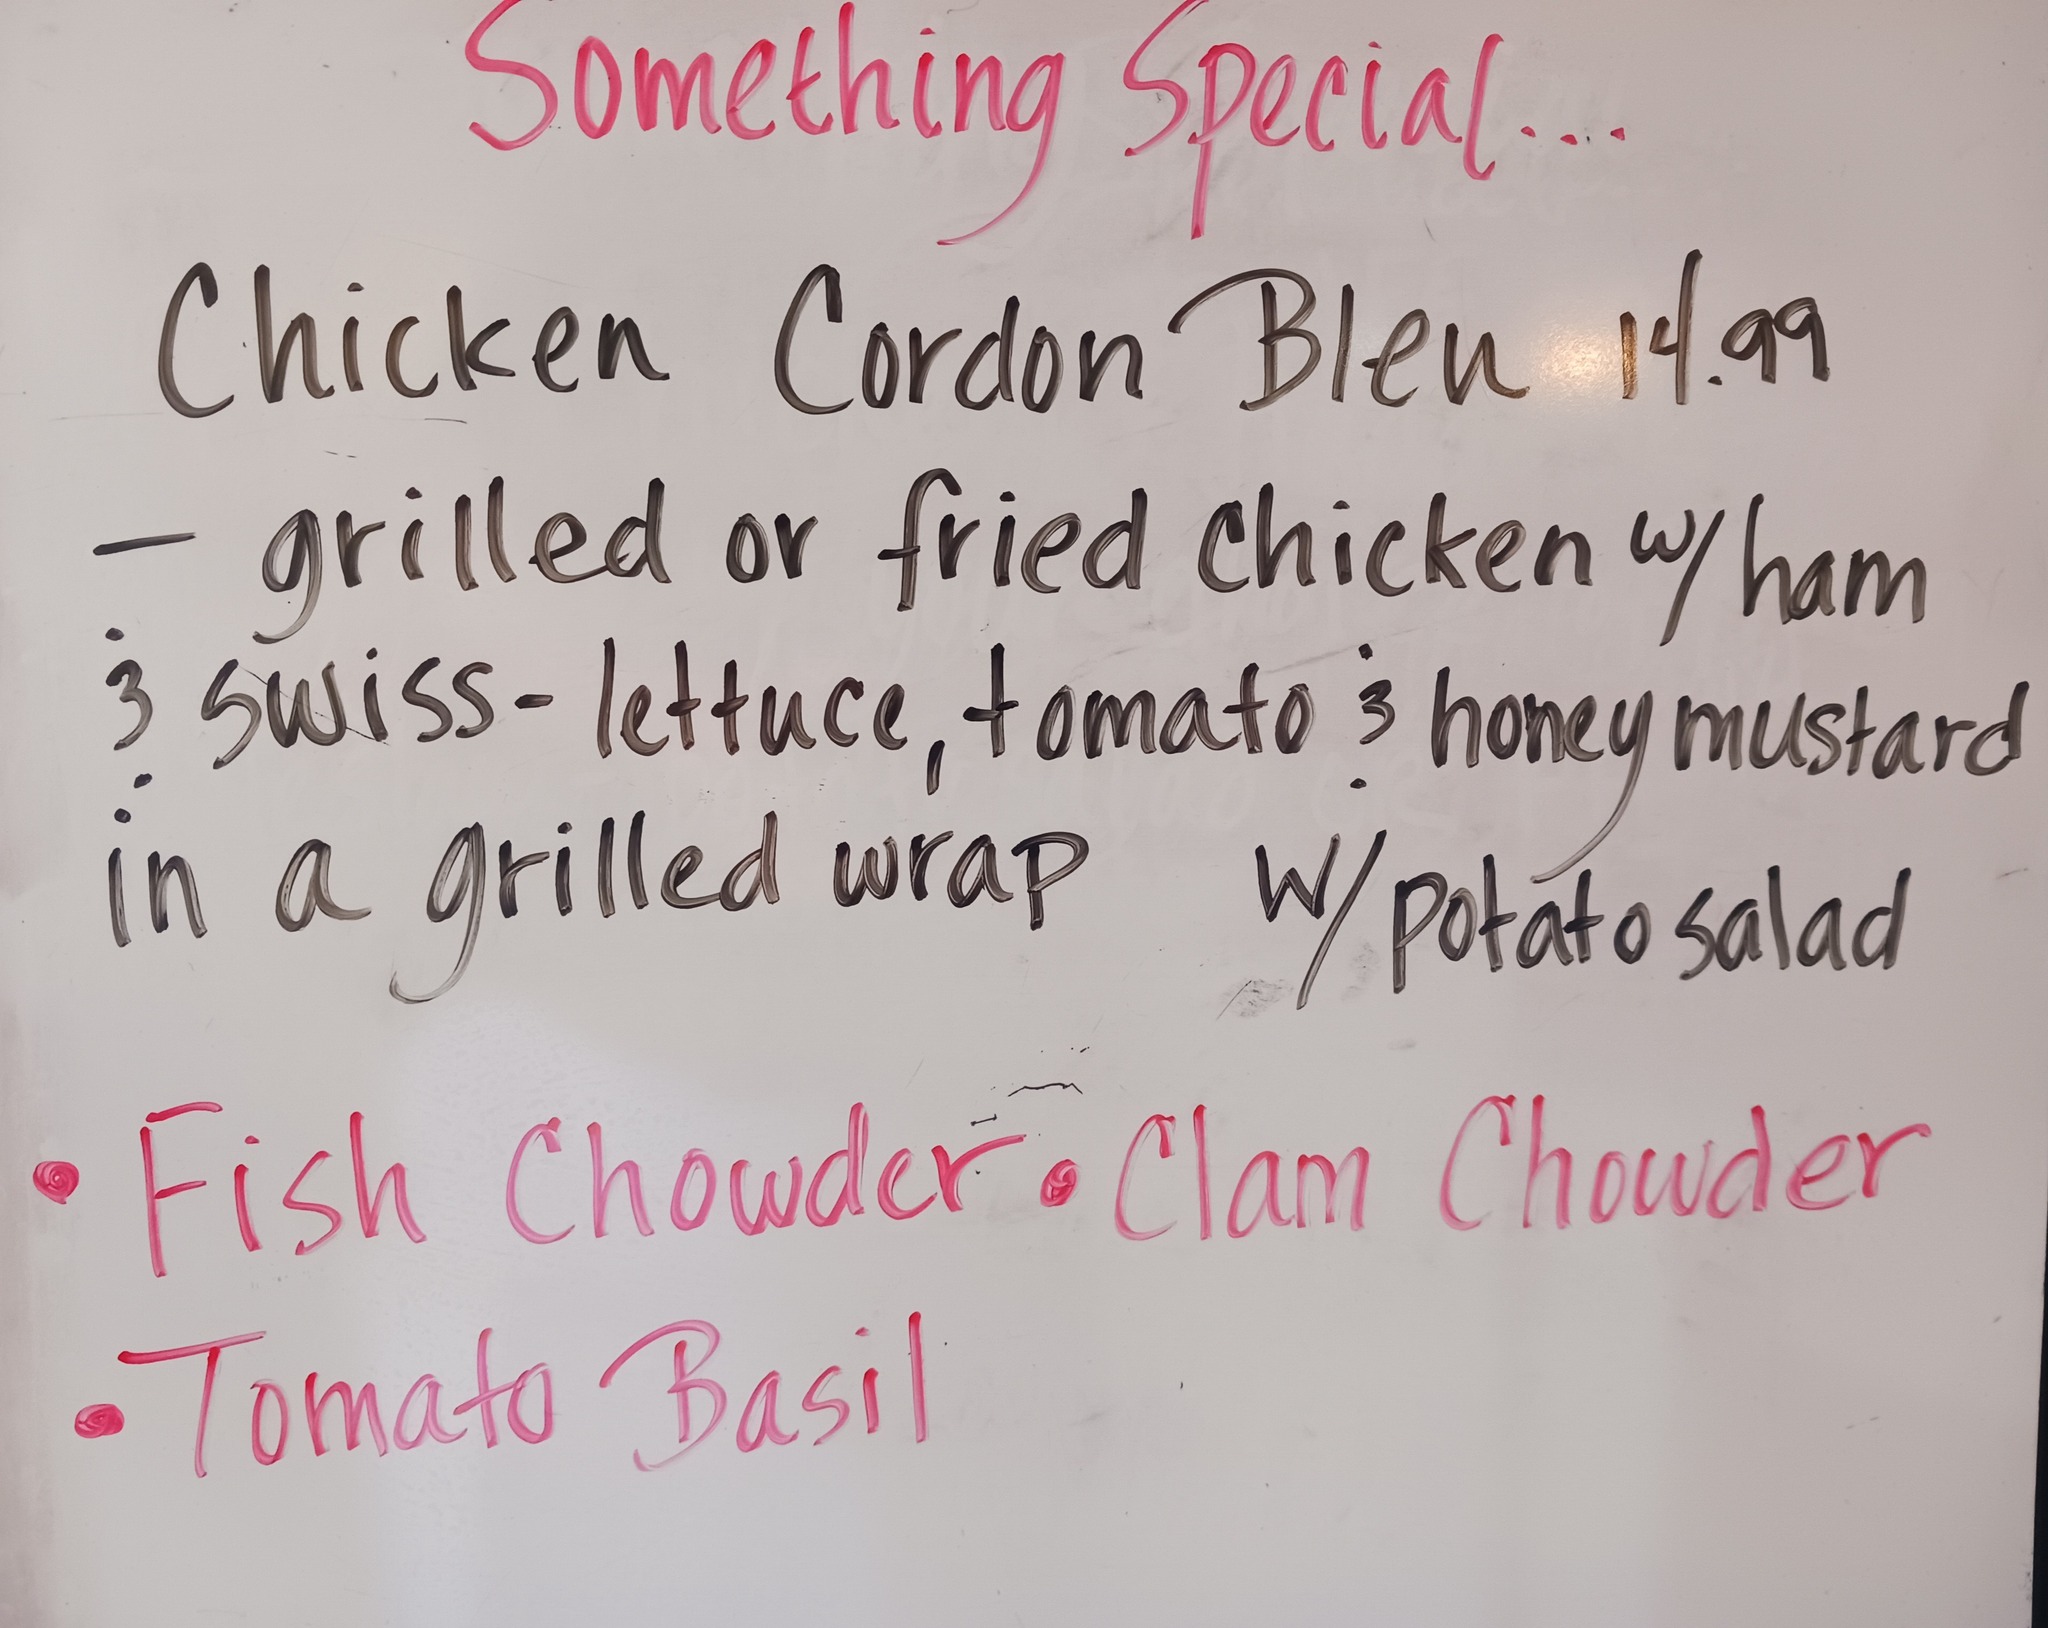 Something Special...
Chicken Cordon Bleu 14.99
- grilled or fried chicken w/ ham
& swiss - lettuce, tomato & honey mustard
in a grilled wrap w/ potato salad
• Fish Chowder • Clam Chowder
• Tomato Basil